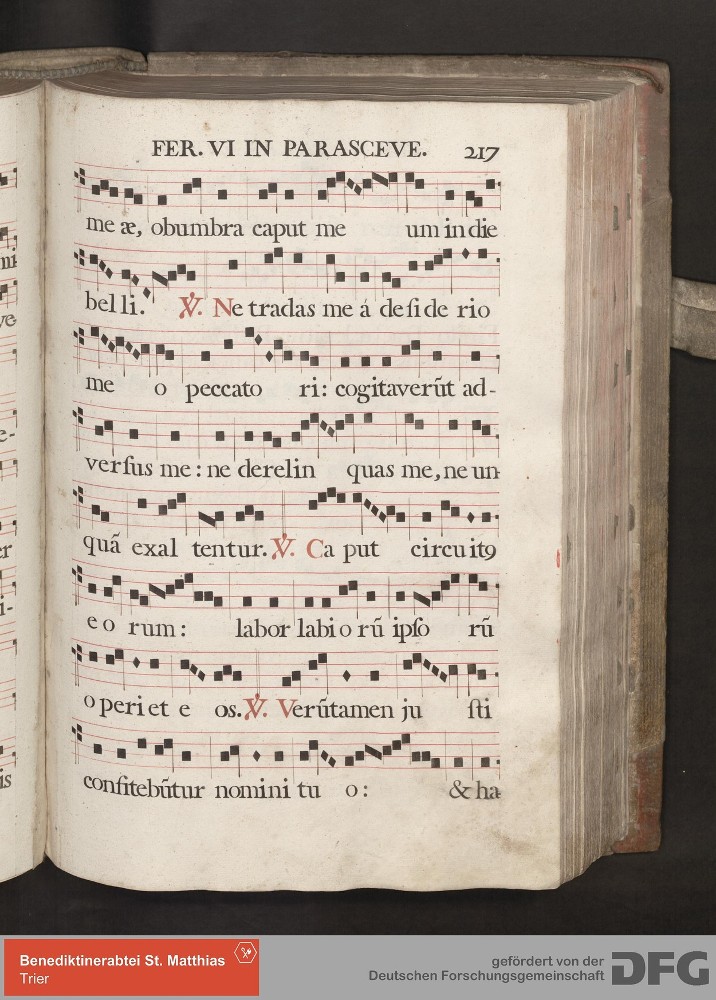 FER. VI IN PARASCEVE. 217
me æ, obumbra caput me um in die
bel li. ℣. Ne tradas me á de ſi de rio
me o peccato ri: cogitaverũt ad-
verſus me: ne derelin quas me, ne un-
quã exal tentur. ℣. Ca put circu itꝯ
e o rum: labor labi o rũ ipſo rũ
o peri et e os. ℣. Verũtamen ju ſti
confitebũtur nomini tu o: & ha-
m
ve
e-
er
i-
is
Benediktinerabtei St. Matthias
Trier
gefördert von der
Deutschen Forschungsgemeinschaft
DFG